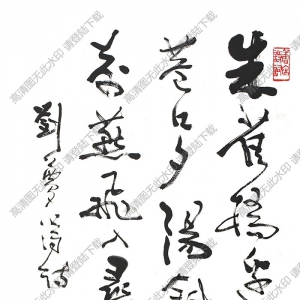 朱雀橋邊
巷口夕陽斜
前燕飛入尋
劉禹錫詩
高清图无此水印 请登陆下载